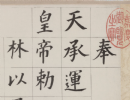 奉
天承運
皇帝勅
林以